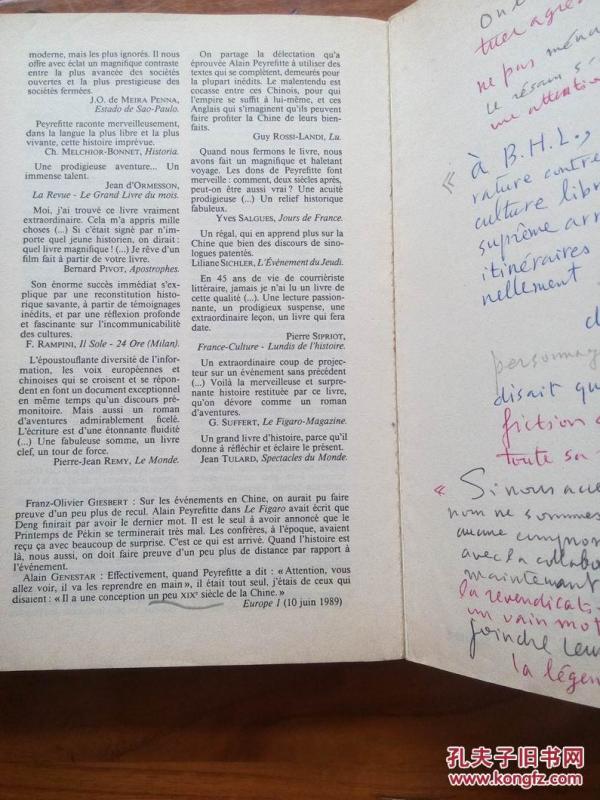 moderne, mais les plus ignorés. Il nous
offre avec éclat un magnifique contraste
entre la plus avancée des sociétés
ouvertes et la plus prestigieuse des
sociétés fermées.
J.O. de MEIRA PENNA,
Estado de Sao-Paulo.
Peyrefitte raconte merveilleusement,
dans la langue la plus libre et la plus
vivante, cette histoire imprévue.
Ch. MELCHIOR-BONNET, Historia.
Une prodigieuse aventure... Un
immense talent.
Jean d'ORMESSON,
La Revue - Le Grand Livre du mois.
Moi, j'ai trouvé ce livre vraiment
extraordinaire. Cela m'a appris mille
choses (...) Si c'était signé par n'im-
porte quel jeune historien, on dirait :
quel livre magnifique! (...) Je rêve d'un
film fait à partir de votre livre.
Bernard PIVOT, Apostrophes.
Son énorme succès immédiat s'ex-
plique par une reconstitution histo-
rique savante, à partir de témoignages
inédits, et par une réflexion profonde
et fascinante sur l'incommunicabilité
des cultures.
F. RAMPINI, Il Sole - 24 Ore (Milan).
L'époustouflante diversité de l'infor-
mation, les voix européennes et
chinoises qui se croisent et se répon-
dent en font un document exceptionnel
en même temps qu'un discours pré-
monitoire. Mais aussi un roman
d'aventures admirablement ficelé.
L'écriture est d'une étonnante fluidité
(...) Une fabuleuse somme, un livre
clef, un tour de force.
Pierre-Jean REMY, Le Monde.
On partage la délectation qu'a
éprouvée Alain Peyrefitte à utiliser des
textes qui se complètent, demeurés pour
la plupart inédits. Le malentendu est
cocasse entre ces Chinois, pour qui
l'empire se suffit à lui-même, et ces
Anglais qui s'imaginent qu'ils peuvent
faire profiter la Chine de leurs bien-
faits.
Guy ROSSI-LANDI, Lu.
Quand nous fermons le livre, nous
avons fait un magnifique et haletant
voyage. Les dons de Peyrefitte font
merveille : comment, deux siècles après,
peut-on être aussi vrai? Une acuité
prodigieuse (...) Un relief historique
fabuleux.
Yves SALGUES, Jours de France.
Un régal, qui en apprend plus sur la
Chine que bien des discours de sino-
logues patentés.
Liliane SICHLER, L'Événement du Jeudi.
En 45 ans de vie de courriériste
littéraire, jamais je n'ai lu un livre de
cette qualité (...). Une lecture passion-
nante, un prodigieux suspense, une
extraordinaire leçon, un livre qui fera
date.
Pierre SIPRIOT,
France-Culture - Lundis de l'histoire.
Un extraordinaire coup de projec-
teur sur un événement sans précédent
(...) Voilà la merveilleuse et surpre-
nante histoire restituée par ce livre,
qu'on dévore comme un roman
d'aventures.
G. SUFFERT, Le Figaro-Magazine.
Un grand livre d'histoire, parce qu'il
donne à réfléchir et éclaire le présent.
Jean TULARD, Spectacles du Monde.
Franz-Olivier GIESBERT : Sur les événements en Chine, on aurait pu faire
preuve d'un peu plus de recul. Alain Peyrefitte dans Le Figaro avait écrit que
Deng finirait par avoir le dernier mot. Il est le seul à avoir annoncé que le
Printemps de Pékin se terminerait très mal. Les confrères, à l'époque, avaient
reçu ça avec beaucoup de surprise. C'est ce qui est arrivé. Quand l'histoire est
là, nous aussi, on doit faire preuve d'un peu plus de distance par rapport à
l'événement.
Alain GENESTAR : Effectivement, quand Peyrefitte a dit : « Attention, vous
allez voir, il va les reprendre en main », il était tout seul, j'étais de ceux qui
disaient : « Il a une conception un peu XIXe siècle de la Chine. »
Europe 1 (10 juin 1989)
tuer
ne pas
Le
une attention
« à B.H.L.,
rature contre
culture
suprême
itinéraires
nellement
d
personnag
disait qu
fiction
toute sa
« Si nous
nom ne sommes
aucune
avec la
maintenant
la
un vain mot
joindre leur
la légen
孔夫子旧书网
www.kongfz.com